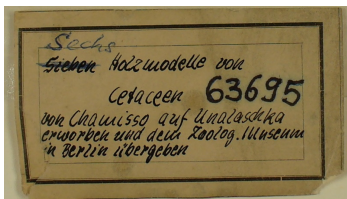 Sechs
Sieben Holzmodelle von
Cetaceen 63695
von Chamisso auf Unalaschka
erworben und dem Zoolog. Museum
in Berlin übergeben